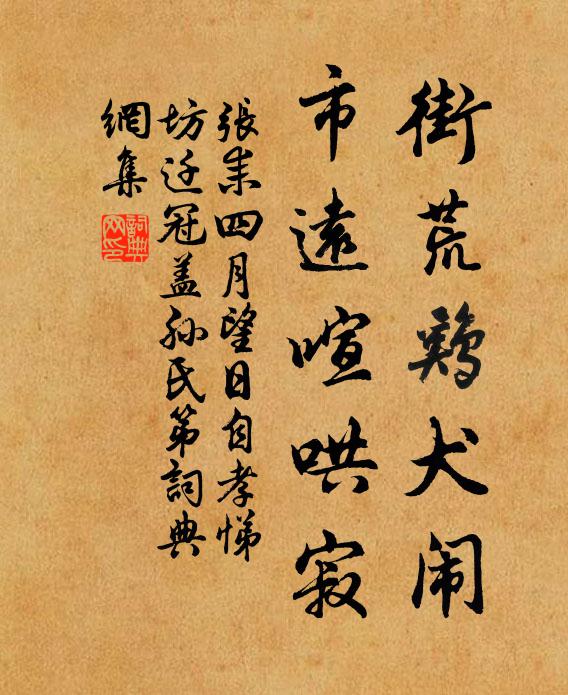 街荒鷄犬闹
市遠喧哄寂
張耒四月望日自孝悌
坊迁冠盖孙氏第詞典
網集
詞典網印